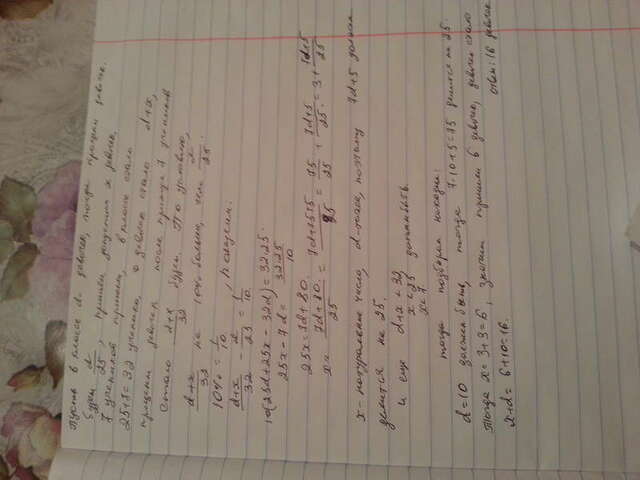 Пусть в классе d девочек, тогда процент девочек
будет d/25, пришли, допустим x девочек,
7 учеников пришли, в классе стало
25+7=32 ученика, а девочек стало d+x,
процент девочек после прихода 7 учеников
стало (d+x)/32 будет. По условию,
(d+x)/32 на 10% больше, чем d/25.
10% = 1/10, получим:
(d+x)/32 - d/25 = 1/10.
10(25d+25x-32d)=32·25.
25x-7d= 32·25/10
25x=7d+80.
x= (7d+80)/25 = (7d+75+5)/25 = 75/25 + (7d+5)/25 = 3 + (7d+5)/25
x - натуральное число, d-тоже, поэтому 7d+5 должно
делится на 25.
и еще d+x < 32,
x < 25 должно быть.
x < 7
тогда подбором находим:
d=10 должен быть, тогда 7·10+5=75 делится на 25.
Тогда x=3+3=6, значит пришли 6 девочек, девочек стало
x+d= 6+10=16. ответ: 16 девочек.